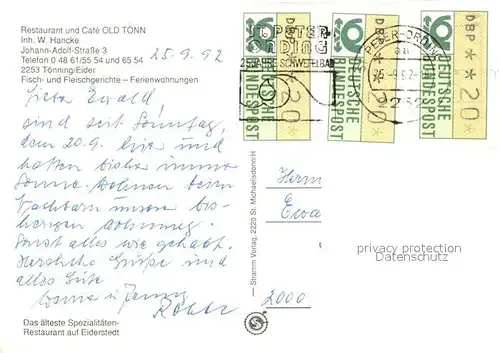 Restaurant und Café OLD TÖNN
Inh. W. Hancke
Johann-Adolf-Straße 3
Telefon 0 48 61/55 54 und 65 54
2253 Tönning/Eider
Fisch- und Fleischgerichte – Ferienwohnungen
25.9.92
Lieber Ewald,
sind seit Sonntag,
dem 20.9. hier und
hatten bisher immer
Sonne. Wohnen beim
Nachbarn unsere bis-
herigen Wohnung.
Sonst alles wie gehabt.
Herzliche Grüße und
alles Gute
u.
Das älteste Spezialitäten-
Restaurant auf Eiderstedt
– Stramm Verlag, 2220 St. Michaelisdonn/H
ST. PETER-
ORDING
SCHWEFELBAD
DEUTSCHE
BUNDESPOST
DBP * * 20 *
DEUTSCHE
BUNDESPOST
DBP 20 *
DEUTSCHE
BUNDESPOST
DBP * * 20 *
PETER-ORDING
-9.92
2252
Herrn
Ewa
2000
privacy protection
Datenschutz